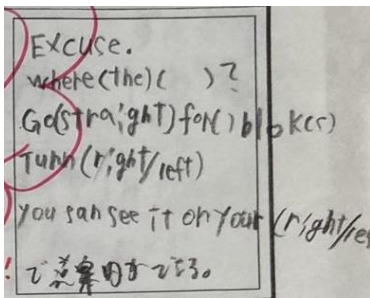 Excuse.
where(the)(   )?
Go(straight)for( )bloks(s)
Turn(right/left)
you san see it on your (right/le
! で道案内ができる。